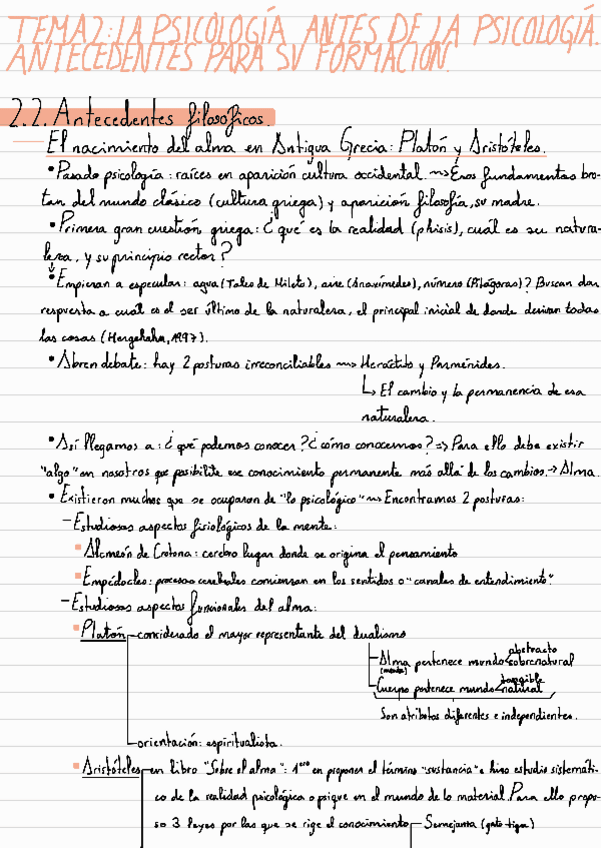 TEMA2: LA PSICOLOGÍA ANTES DE LA PSICOLOGÍA.
ANTECEDENTES PARA SU FORMACIÓN.
2.2. Antecedentes filosóficos.
El nacimiento del alma en Antigua Grecia: Platón y Aristóteles.
• Pasado psicología: raíces en aparición cultura occidental. ⇝ Esos fundamentos bro-
tan del mundo clásico (cultura griega) y aparición filosofía, su madre.
• Primera gran cuestión griega: ¿qué es la realidad (phisis), cuál es su natura-
leza, y su principio rector?
• Empiezan a especular: agua (Tales de Mileto), aire (Anaxímedes), número (Pitágoras)? Buscan dar
respuesta a cuál es el ser último de la naturaleza, el principal inicial de donde derivan todas
las cosas (Hergehahn, 1997).
• Abren debate: hay 2 posturas irreconciliables ⇝ Heráclito y Parménides.
↳ El cambio y la permanencia de esa
naturaleza.
• Así llegamos a: ¿qué podemos conocer? ¿cómo conocemos? => Para ello debe existir
"algo" en nosotros que posibilite ese conocimiento permanente más allá de los cambios. → Alma.
• Existieron muchos que se ocuparon de "lo psicológico" ⇝ Encontramos 2 posturas:
- Estudiosos aspectos fisiológicos de la mente:
▪ Alcmeón de Crotona: cerebro lugar donde se origina el pensamiento
▪ Empédocles: procesos cerebrales comienzan en los sentidos o "canales de entendimiento".
- Estudiosos aspectos funcionales del alma:
▪ Platón - considerado el mayor representante del dualismo
Alma (mente) pertenece mundo < abstracto sobrenatural
Cuerpo pertenece mundo < tangible natural
Son atributos diferentes e independientes.
- orientación: espiritualista.
▪ Aristóteles - en libro "Sobre el alma": 1ero en proponer el término "sustancia" e hizo estudio sistemáti-
co de la realidad psicológica o psique en el mundo de lo material. Para ello propu-
so 3 leyes por las que se rige el conocimiento - Semejanza (gato-tigre)